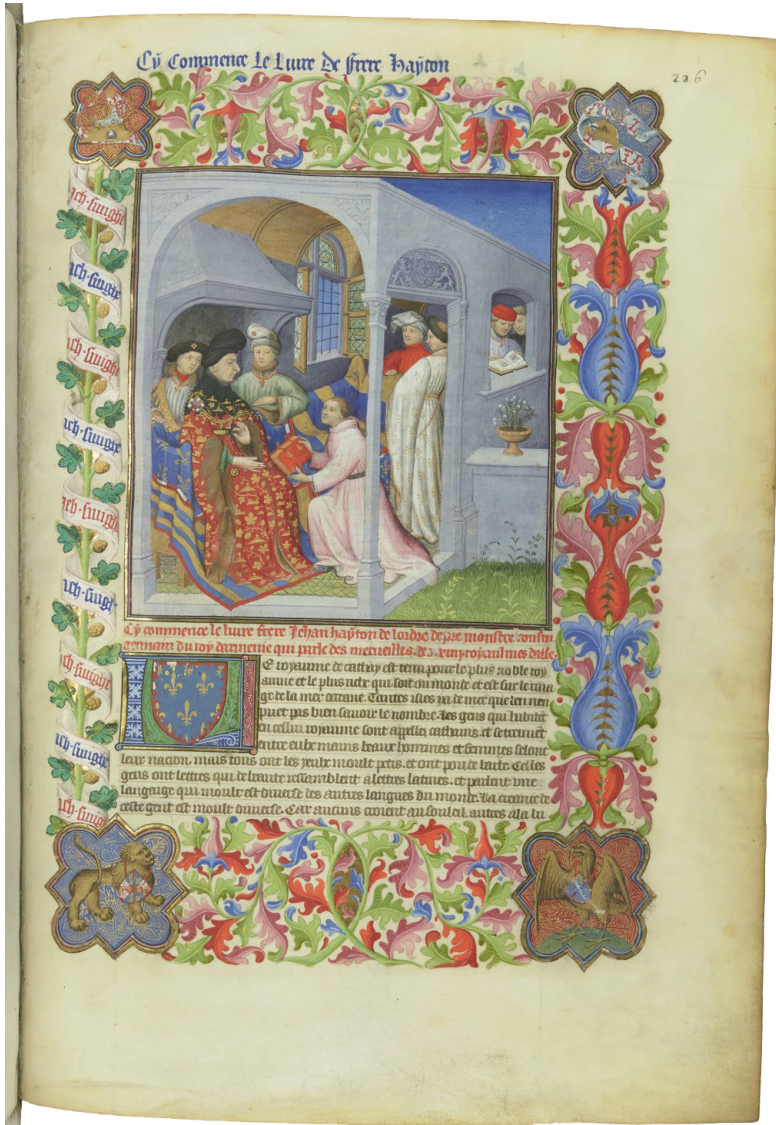 Cy Commence Le Livre De frere Hayton
226
ich·swighe
ich·swighe
ich·swighe
ich·swighe
ich·swighe
ich·swighe
ich·swighe
ich·swighe
ich·swighe
Cy commence le livre frere Jehan hayton de lordre de pre monstre cousin
germain du roy darmenie qui parle des merueilles. des royaulmes dasie.
E royaume de cathay est tenu pour le plus noble roy
aume et le plus riche qui soit ou monde et est sur le riua
ge de la mer occeane. Tantes isles ya de mer que len nen
puet pas bien sauoir le nombre. Les gens qui habitent
en cellui royaume sont appellez cathains. et se treuuent
entre eulx moins beaux hommes et femmes selonc
leur nacion. mais tous ont les yeulx moult petis. et ont pou de barbe. Celles
gens ont lettres qui de beaute ressamblent a lettres latines. et parlent vne
langaige qui moult est diuerse des autres langues du monde. La creance de
ceste gent est moult diuerse. Car aucuns croient au souleil. autres a la lu